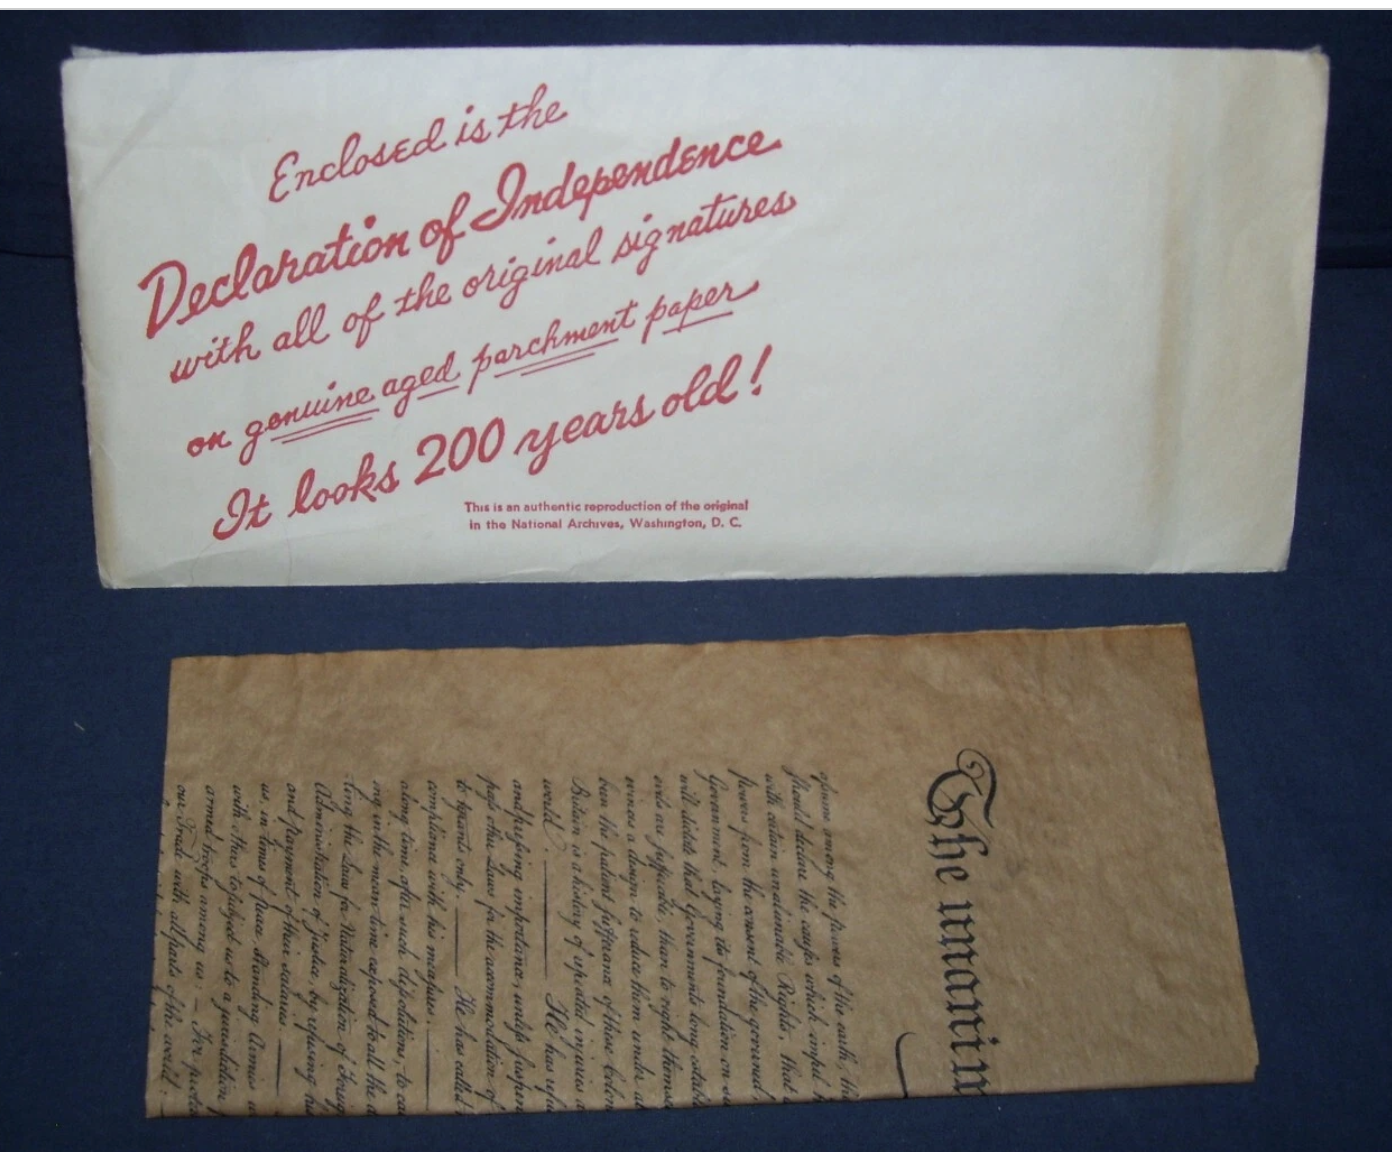 Enclosed is the
Declaration of Independence
with all of the original signatures
on genuine aged parchment paper
It looks 200 years old!
This is an authentic reproduction of the original
in the National Archives, Washington, D. C.
The unanim
assume among the powers of the earth, the
should declare the causes which impel
with certain unalienable Rights, that
powers from the consent of the governed,
Government, laying its foundation on
will dictate that Governments long estab
evils are sufferable, than to right themse
evinces a design to reduce them under
been the patient sufferance of these Colon
Britain is a history of repeated injuries
world. He has refu
and pressing importance, unless suspen
pass other Laws for the accommodation of
to tyrants only. He has called
compliance with his measures.
along time, after such dissolutions, to ca
ing in the mean time exposed to all the
ting the Laws for Naturalization of Foreig
Administration of Justice, by refusing his
and payment of their salaries
us, in times of peace, Standing Armies
with others to subject us to a jurisdiction
armed troops among us: — For prote
our Trade with all parts of the world: —